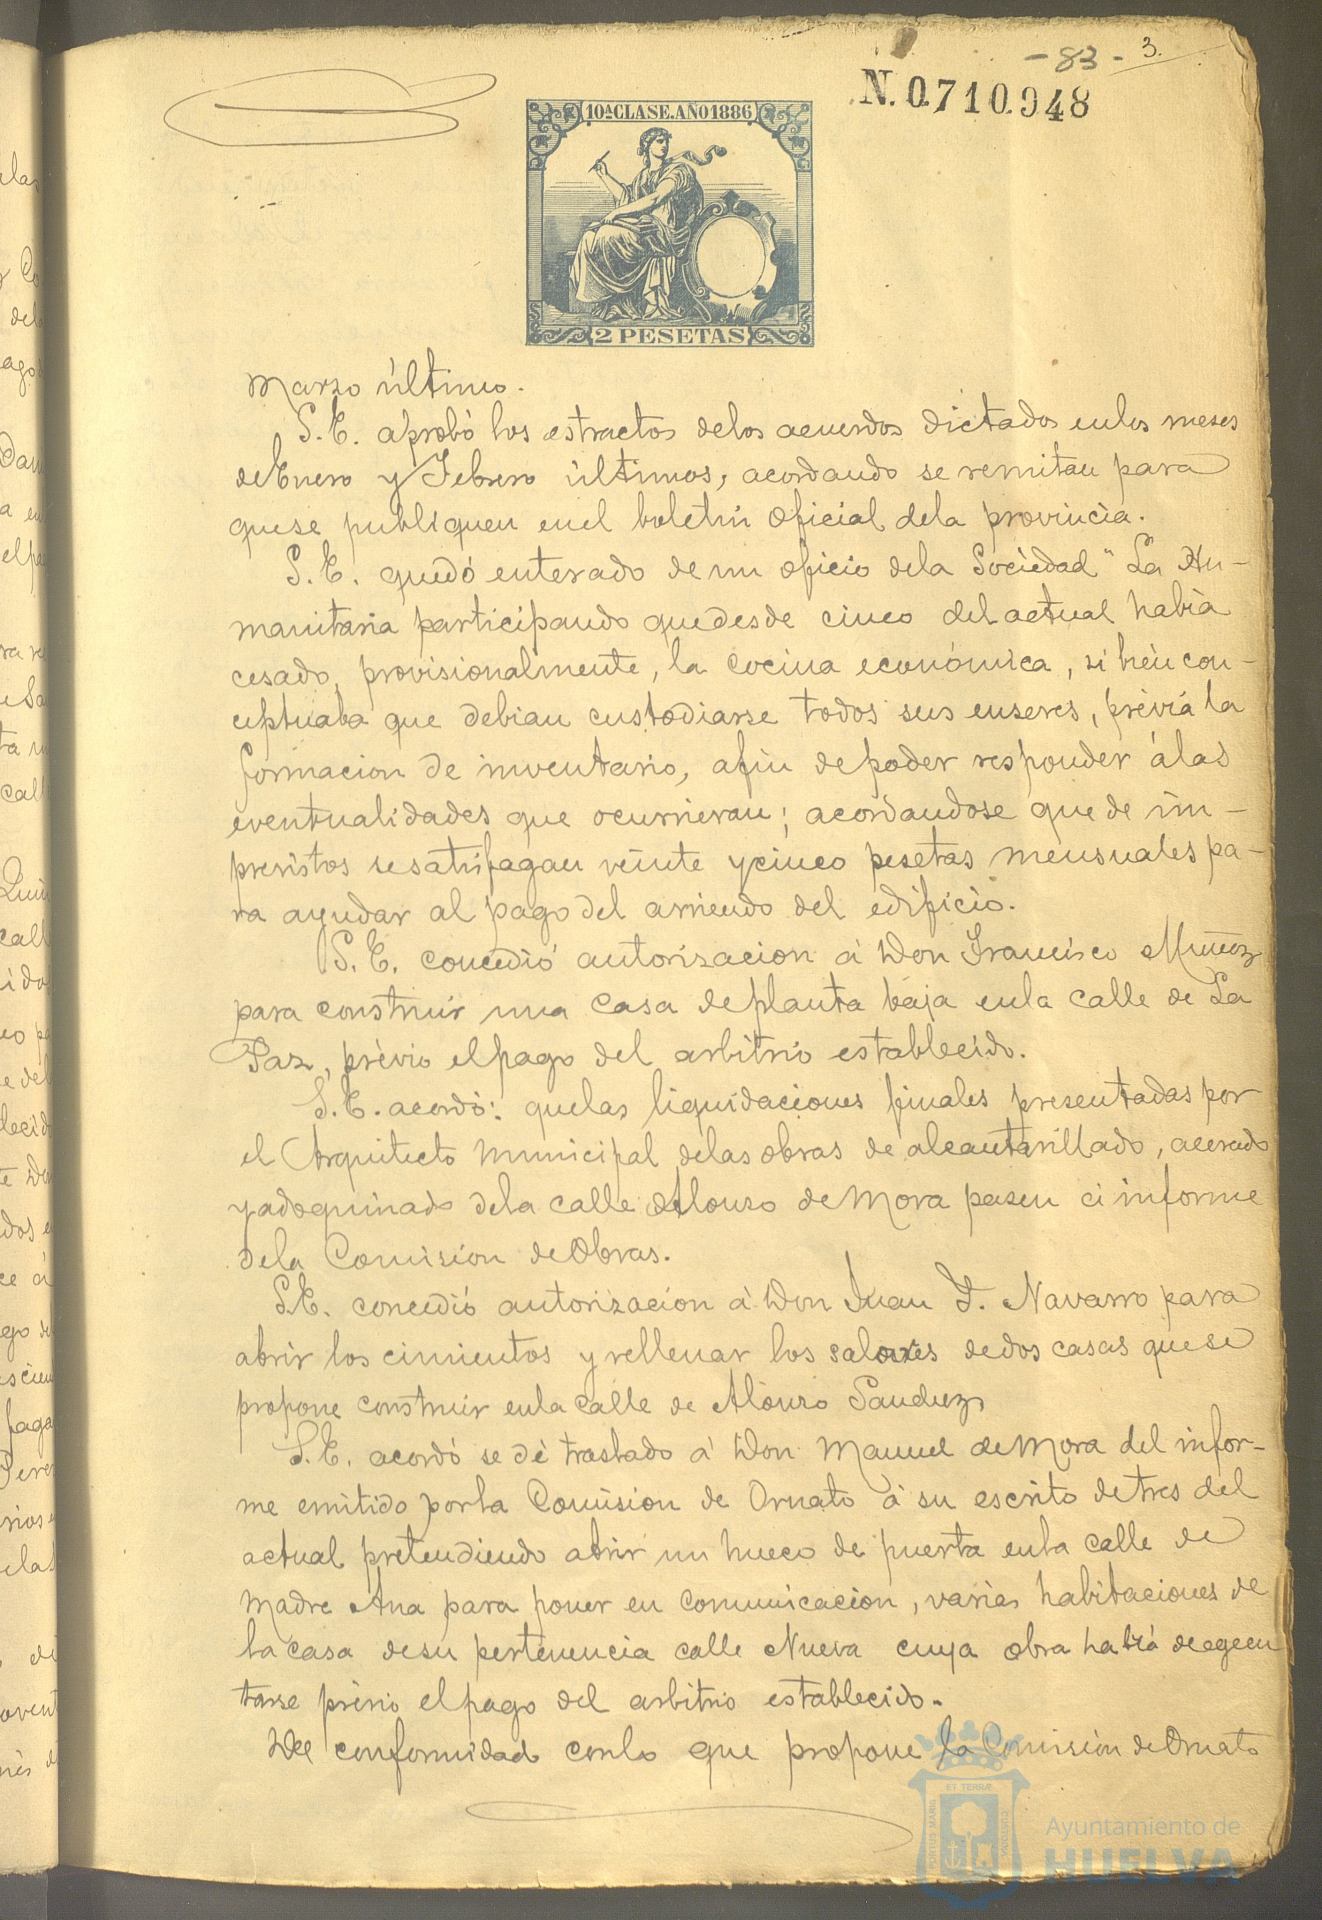 - 83 - 3.
N. 0.710.948
10ª CLASE. AÑO 1886
2 PESETAS
Marzo último.
S. E. aprobó los estractos delos acuerdos dictados enlos meses
deEnero y Febrero últimos, acordando se remitan para
quese publiquen enel boletin oficial dela provincia.
S. E. quedó enterado de un oficio dela Sociedad "La Hu-
manitaria participando quedesde cinco del actual habia
cesado, provisionalmente, la cocina económica, si bien con-
ceptuaba que debian custodiarse todos sus enseres, prévia la
formacion de inventario, afin depoder responder álas
eventualidades que ocurrieran; acordandose que de im-
previstos sesatisfagan veinte ycinco pesetas mensuales pa-
ra ayudar al pago del arriendo del edificio.
S. E. concedió autorizacion á Don Francisco Muñoz
para construir una casa deplanta baja enla calle de La
Paz, prévio elpago del arbitrio establecido.
S. E. acordó: quelas liquidaciones finales presentadas por
el Arquitecto municipal delas obras de alcantarillado, acerado
yadoquinado dela calle Alonso de Mora pasen á informe
dela Comision deObras.
S.E. concedió autorizacion á Don Juan F. Navarro para
abrir los cimientos y rellenar los solares dedos casas quese
propone construir enla calle de Alonso Sanchez
S. E. acordó se dé traslado á Don Manuel deMora del infor-
me emitido porla Comision de Ornato á su escrito detres del
actual pretendiendo abrir un hueco de puerta enla calle de
Madre Ana para poner en comunicacion, varias habitaciones de
la casa desu pertenencia calle Nueva cuya obra habrá deegecu
tarse prévio elpago del arbitrio establecido.
De conformidad conlo que propone la Comision deOrnato
ET TERRÆ
PORTUS MARIS
CUSTODIA
Ayuntamiento de
HUELVA